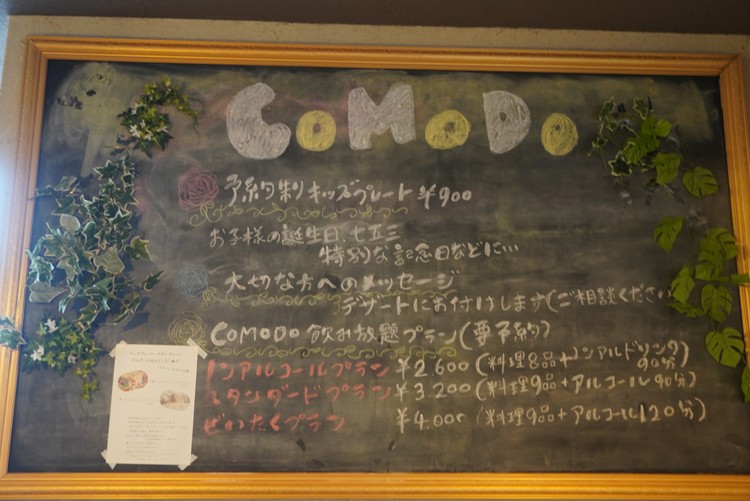 CoMoDo
予約制キッズプレート ¥900
お子様の誕生日 七五三
特別な記念日などに…
大切な方へのメッセージ
デザートにお付けします(ご相談ください
COMODO 飲み放題プラン(要予約)
ノンアルコールプラン ¥2.600 (料理8品+ノンアルドリンク90分)
スタンダードプラン ¥3.200 (料理9品+アルコール90分)
ぜいたくプラン ¥4.000 (料理9品+アルコール120分)